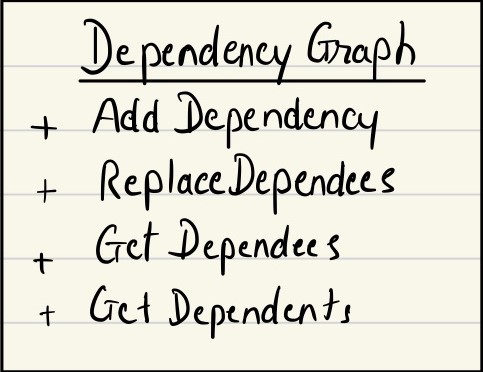 Dependency Graph
+ Add Dependency
+ Replace Dependees
+ Get Dependees
+ Get Dependents